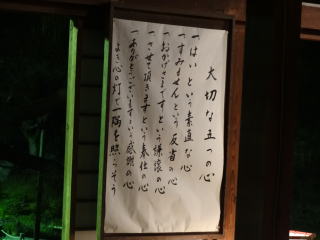 大切な五つの心
一はいという素直な心
一すみませんという反省の心
一おかげさまですという謙譲の心
一させて頂きますという奉仕の心
一ありがとうございますという感謝の心
よき心の灯で一隅を照らそう